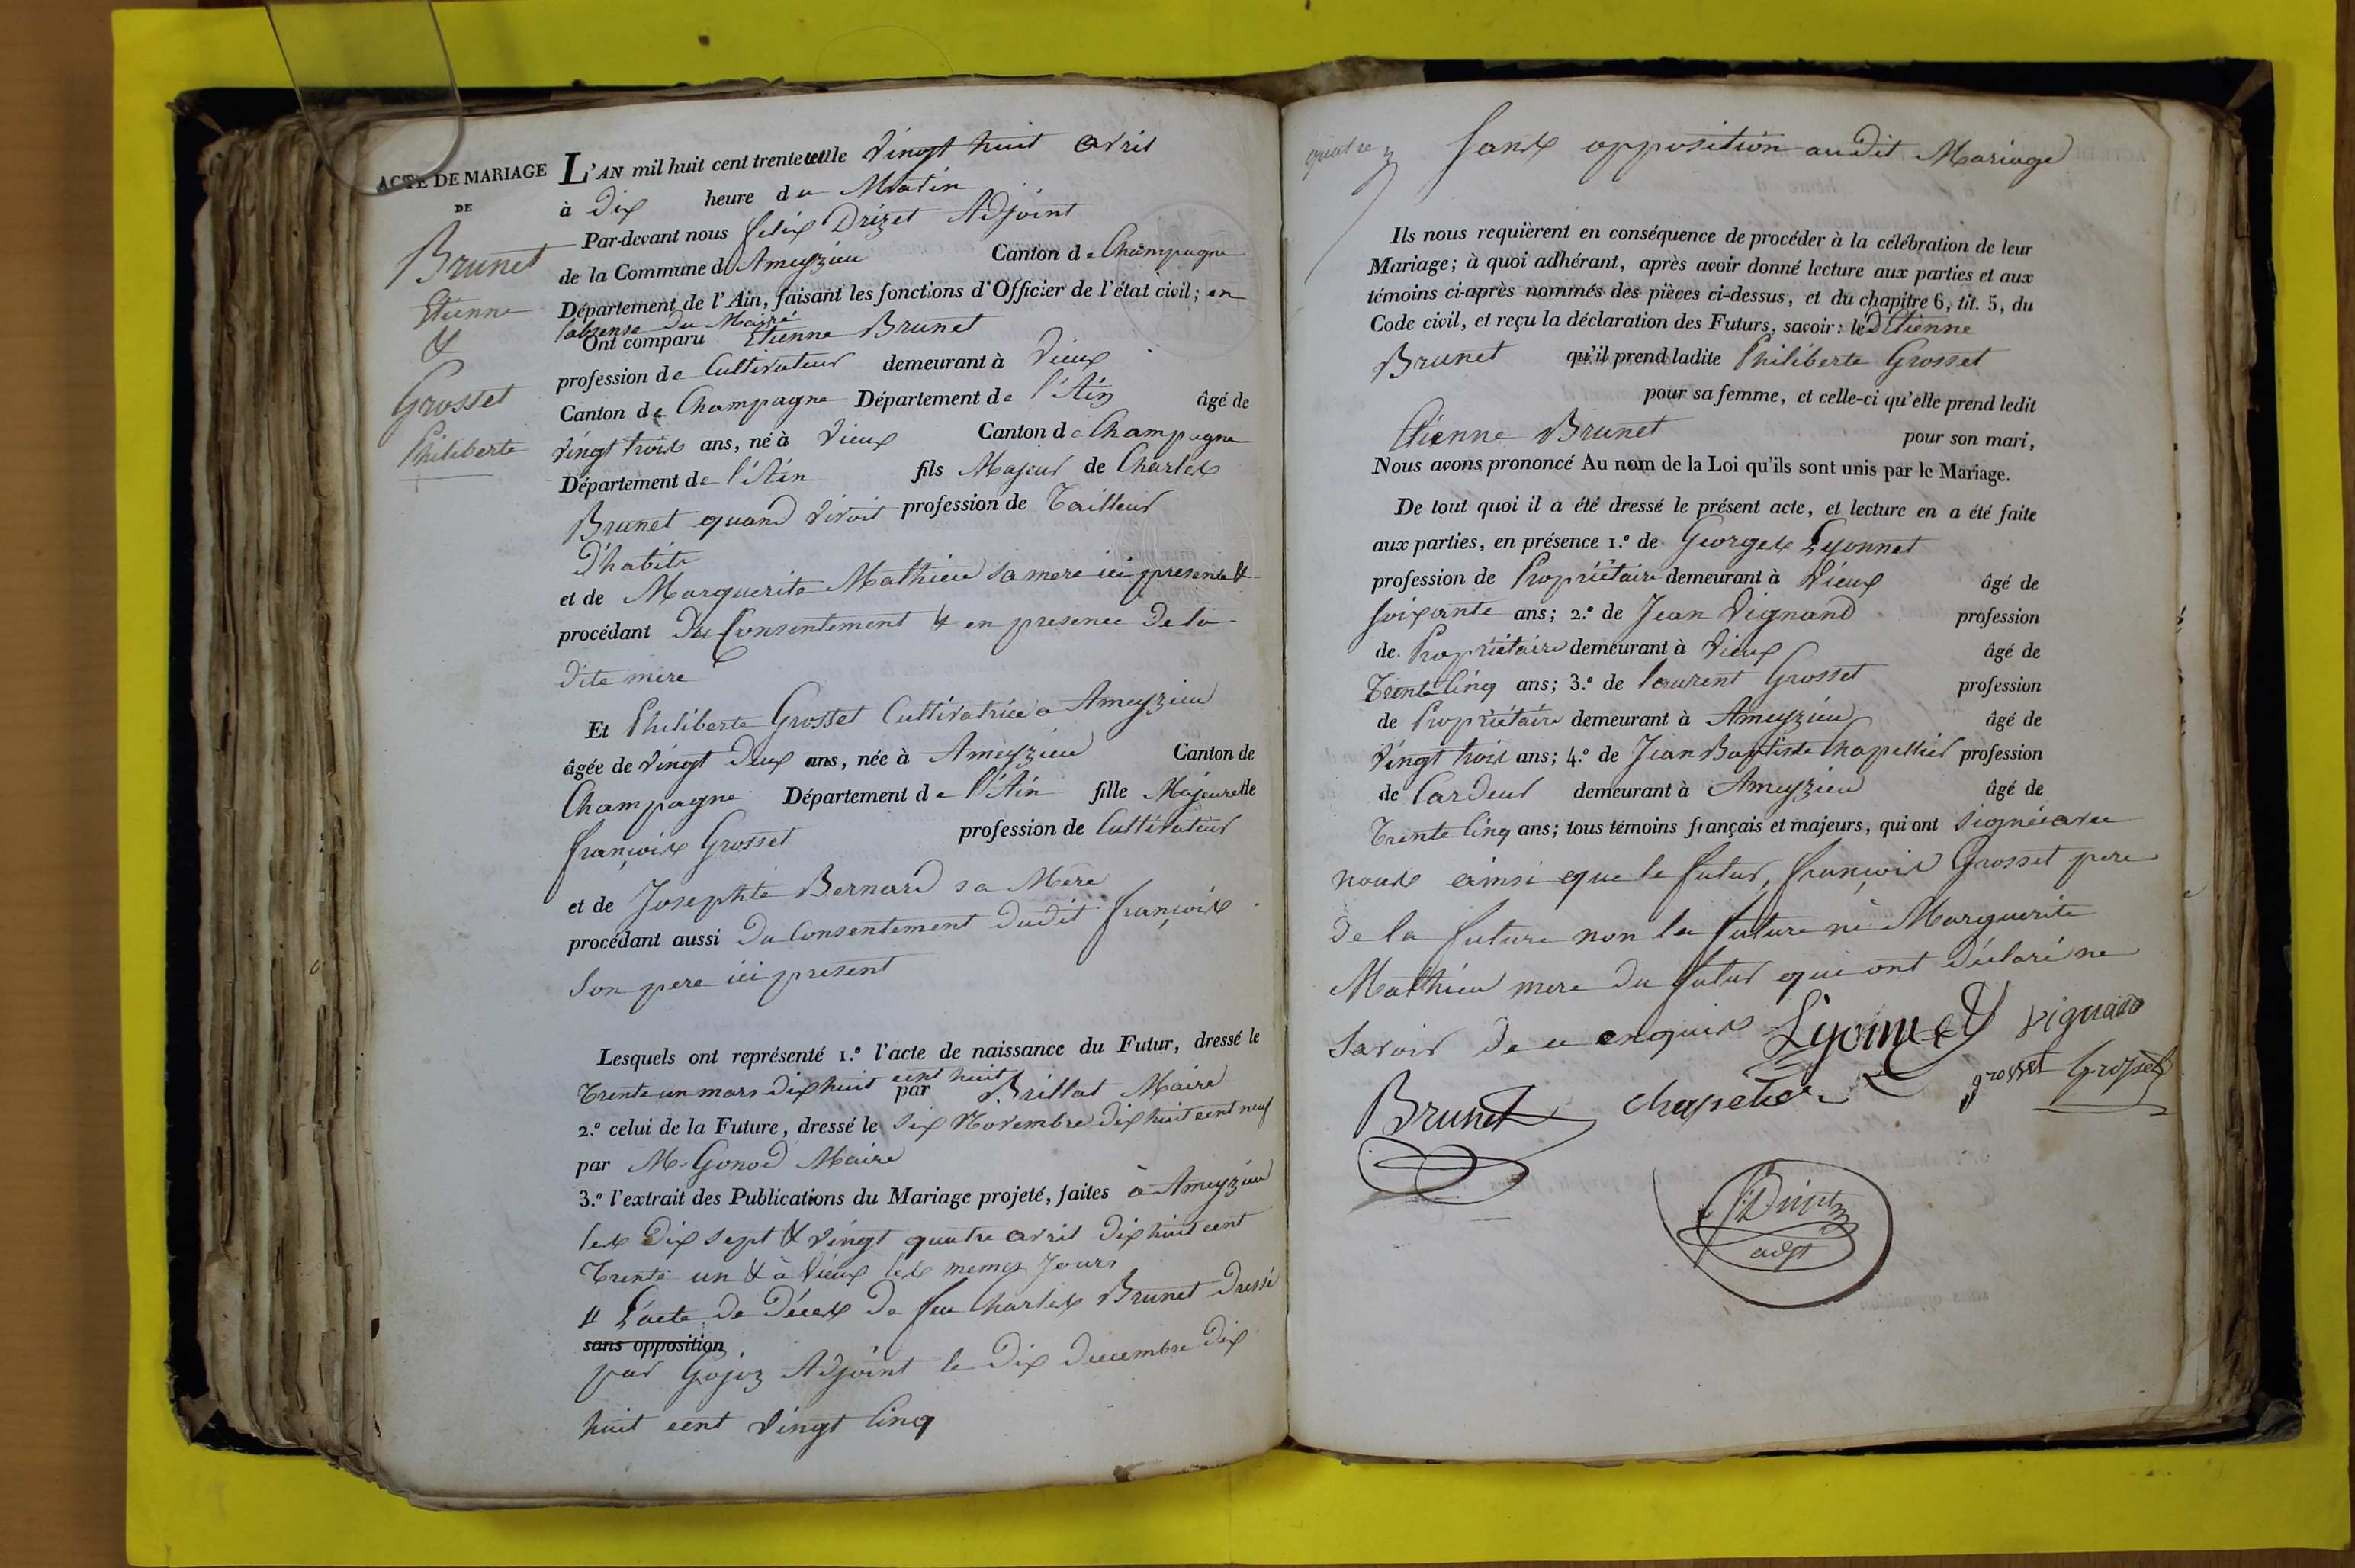 ACTE DE MARIAGE
DE
Brunet
Etienne
&
Grosset
Philiberte
L'AN mil huit cent trente un le vingt huit avril
à dix heure du Matin
Par-devant nous felix Drizet Adjoint
de la Commune d'Ameyzieu Canton de Champagne
Département de l'Ain, faisant les fonctions d'Officier de l'état civil; en
l'absense du Maire
Ont comparu Etienne Brunet
profession de Cultivateur demeurant à Vieux
Canton de Champagne Département de l'Ain âgé de
vingt trois ans, né à Vieux Canton de Champagne
Département de l'Ain fils Majeur de Charles
Brunet quand vivoit profession de Tailleur
d'habits
et de Marguerite Mathieu sa mere ici presente &
procédant du Consentement & en presence de la
dite mere
Et Philiberte Grosset Cultivatrice a Ameyzieu
âgée de vingt deux ans, née à Ameyzieu Canton de
Champagne Département de l'Ain fille Majeure de
françois Grosset profession de Cultivateur
et de Josephte Bernard sa Mere
procédant aussi du Consentement dudit françois
son pere ici present
Lesquels ont représenté 1.º l'acte de naissance du Futur, dressé le
Trente un mars dix huit cent huit par Brillat Maire
2.º celui de la Future, dressé le six Novembre dix huit cent neuf
par M. Gonod Maire
3.º l'extrait des Publications du Mariage projeté, faites à Ameyzieu
les dix sept & vingt quatre avril dix huit cent
Trente un & à Vieux les memes Jours
4 L'acte de déces de feu Charles Brunet dressé
sans opposition
par Gojoz Adjoint le dix decembre dix
huit cent vingt Cinq
quatre
sans opposition audit Mariage
Ils nous requièrent en conséquence de procéder à la célébration de leur
Mariage; à quoi adhérant, après avoir donné lecture aux parties et aux
témoins ci-après nommés des pièces ci-dessus, et du chapitre 6, tit. 5, du
Code civil, et reçu la déclaration des Futurs, savoir: led Etienne
Brunet qu'il prend ladite Philiberte Grosset
pour sa femme, et celle-ci qu'elle prend ledit
Etienne Brunet pour son mari,
Nous avons prononcé Au nom de la Loi qu'ils sont unis par le Mariage.
De tout quoi il a été dressé le présent acte, et lecture en a été faite
aux parties, en présence 1.º de Georges Lyonnet
profession de Propriétaire demeurant à Vieux âgé de
soixante ans; 2.º de Jean Vignand profession
de Propriétaire demeurant à Vieux âgé de
Trente Cinq ans; 3.º de laurent Grosset profession
de Propriétaire demeurant à Ameyzieu âgé de
vingt trois ans; 4.º de Jean Baptiste Chapellier profession
de Cardeur demeurant à Ameyzieu âgé de
Trente Cinq ans; tous témoins français et majeurs, qui ont signé avec
nous ainsi que le futur, françois Grosset pere
de la future non la future ni Marguerite
Mathieu mere du futur qui ont déclaré ne
savoir de ce enquis Lyonnet vignand
Brunet chapelier grosset Grosset
Drizet
adjt